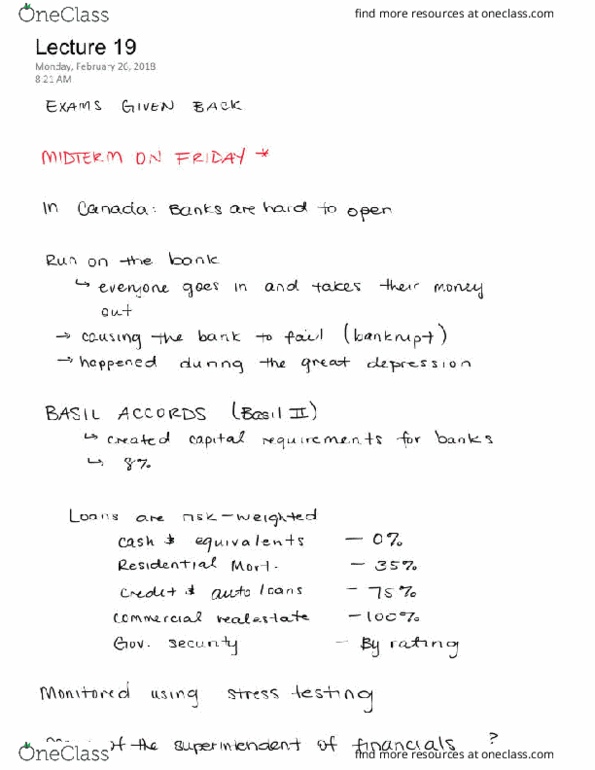 OneClass
find more resources at oneclass.com
Lecture 19
Monday, February 26, 2018
8:21 AM
EXAMS GIVEN BACK
MIDTERM ON FRIDAY *
In Canada: Banks are hard to open
Run on the bank
↳ everyone goes in and takes their money
out
→ causing the bank to fail (bankrupt)
→ happened during the great depression
BASIL ACCORDS (Basil II)
↳ created capital requirements for banks
↳ 8%
Loans are risk-weighted
cash & equivalents - 0%
Residential Mort. - 35%
credit & auto loans - 75%
commercial realestate - 100%
Gov. security - By rating
Monitored using stress testing
of the superintendent of financials ?
OneClass
find more resources at oneclass.com